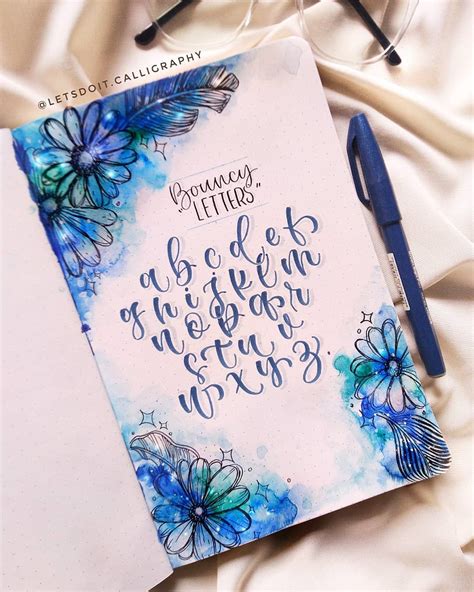 @LETSDOIT.CALLIGRAPHY
Bouncy
"LETTERS"
a b c d e f
g h i j k l m
n o p q r
s t u v
w x y z